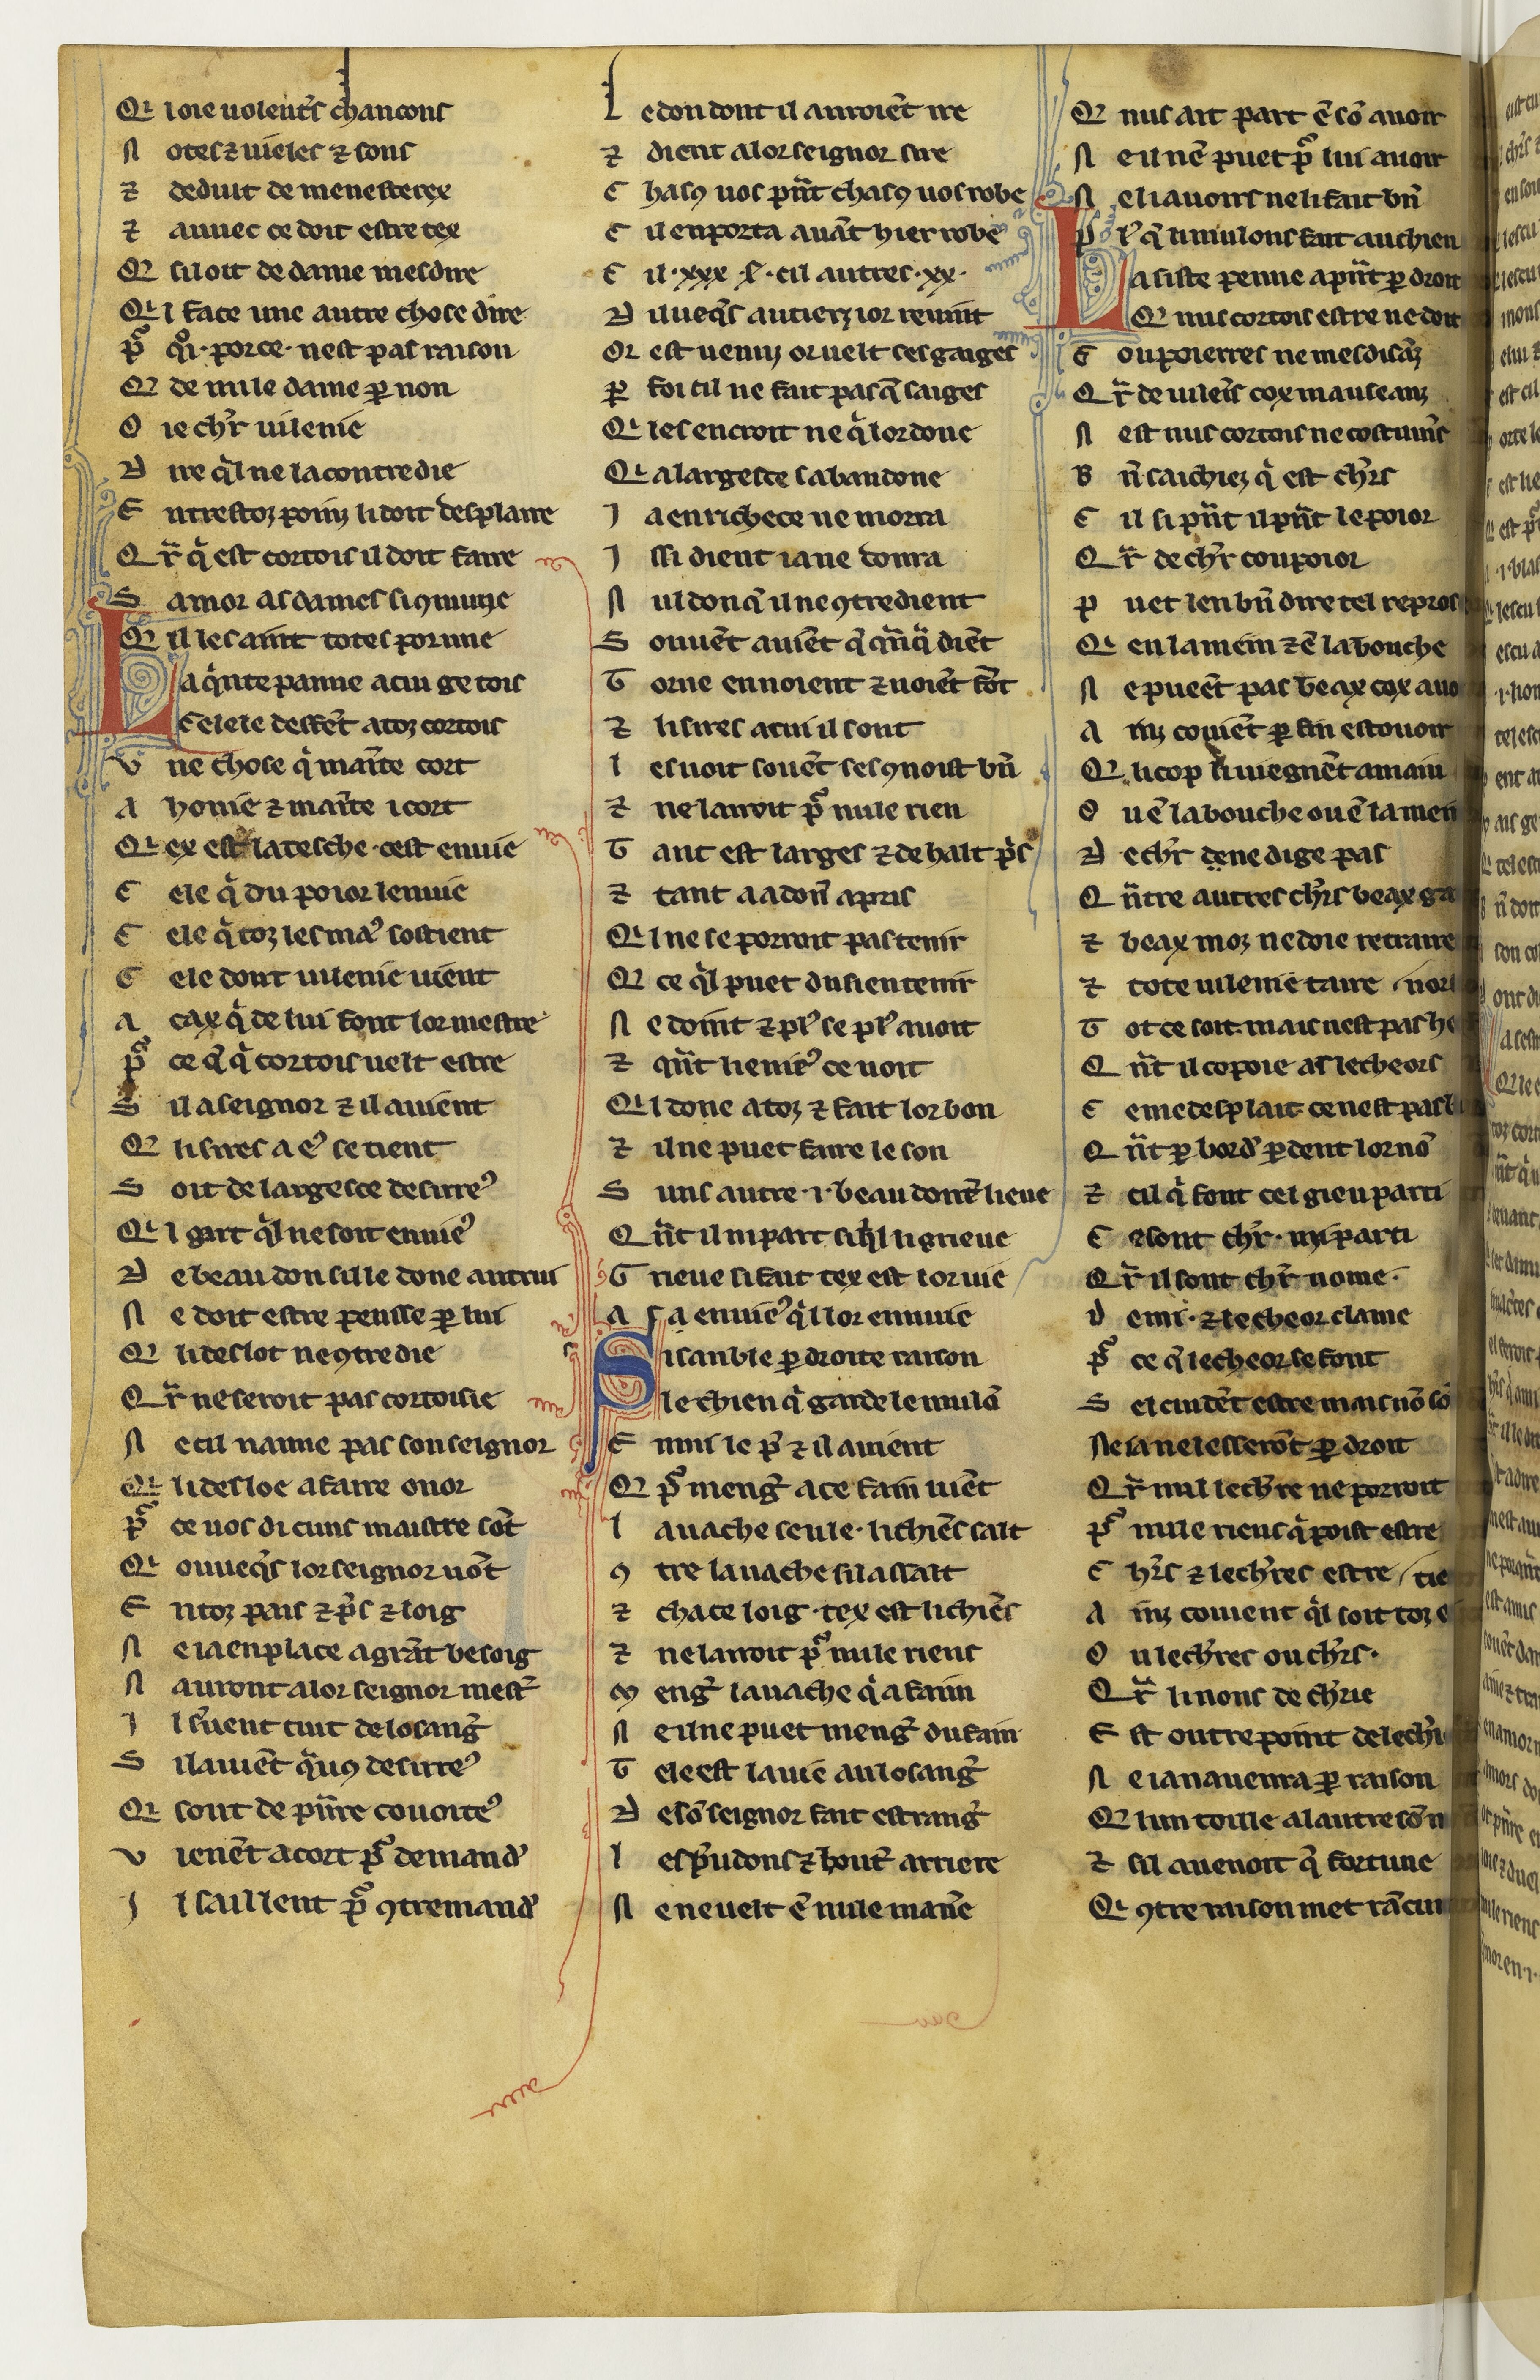 Qi loie uolent's chancons
N otes ⁊ uieles ⁊ sons
⁊ deduit de menesterex
⁊ auuec ce doit estre tex
Q̄ siloit de dame mesdire
Qi l face une autre chose dire
p̄ q̊i · porce · nest pas raison
Q̄ de nule dame ꝑ non
O ie ch'r uilenie
D ire q̓l ne la contredie
E ntrestoz poinz li doit desplaire
Q r̄ q̓ est cortois il doit faire
S amor as dames si ꝯmune
Q̄ il les aint totes por une
L a q̓nte panne acui ge tois
C e le le deffēt atoz cortois
V ne chose q̓ mainte cort
A honie ⁊ mainte icort
Qi ex est la tesche · cest enuie
C ele q̓ du poior lenuie
C ele q̓ toz les ma᷒ sostient
C ele dont uilenie uient
A cax q̓ de lui font lor mestre
p̄ ce q̄ q̓ cortois uelt estre
S il a seignor ⁊ il auient
Q̄ li sires a e᷒ se tient
S oit de largesce desirre᷒
Qi l gart q̓l ne soit enuie᷒
D e beau don sil le done autrui
N e doit estre pensse ꝑ lui
Q̄ li deslot ne ꝯtredie
Q r̄ ne seroit pas cortoisie
N e cil naime pas son seignor
Qi li desloe afaire onor
p̄ ce uos di cuns maistre sōt
Qi ouueq̄s lor seignor uōt
E ntoz pais ⁊ p̓s ⁊ loig
N e ia enplace agrāt besoig
N auront alor seignor mest'
I l s'uent tuit de losang'
S il auiēt q̓uꝯ desirre᷒
Qi sont de pūre couoite᷒
V ienēt acort p̄ demand'
I l saillent p̄ ꝯtremand'
L e don dont il auroiēt ire
⁊ dient alor seignor sire
C hasꝯ uos pn̄t chasꝯ uos robe
C il enporta auāt hier robe᷒
C il · xxx · l' · cil autres · xx ·
D ilueq̄s autierz ior reuint
Or est uenuz oruelt ses gaiges
ꝑ foi cil ne fait pas q̄ saiges
Qi les encroit ne q̓ lor done
Qi a largesce sabandone
J a enrichece ne morra
J ssi dient ia ne donra
N ul don q̄ il ne ꝯtredient
S ouuēt auiēt q̄ qn̄q̓ diēt
T orne ennoient ⁊ noiēt fōt
⁊ li sires acui il sont
l es uoit souēt ses ꝯnoist bn̄
⁊ ne lairoit p̄ nule rien
T ant est larges ⁊ de halt p̓s
⁊ tant a adon̄ apris
Qi l ne se porroit pas tenir
Q̄ ce q̓l puet du sien tenir
N e doint ⁊ pl᷒ se pl᷒ auoit
⁊ qn̄t li enuie᷒ ce uoit
Qi l done atoz ⁊ fait lor bon
⁊ il ne puet faire le son
S uns autre · i · beau don tēt lieue
Q n̄t il ni part si q̓l li grieue
G rieue si fait tex est lor uie
A sa enuie᷒ q̓l lor ennuie
S i sanble ꝑ droite raison
l e chien q̓ garde le mulō
E nmi le p̓ ⁊ il auient
Q̄ p̄ meng' a ce fain uiēt
l a uache seule · li chiēs salt
ꝯ tre la uache si la ssalt
⁊ chace loig · tex est li chiēs
⁊ ne lairoit p̄ nule riens
M eng' la uache q̓ a faim
N e il ne puet meng' du fain
T ele est la uie au losang'
D e sō seignor fait estrang'
l es p̓udons ⁊ bout' arriere
N e ne uelt ē nule man̄e
Q̄ nus ait part ē sō auoir
N e il nē puet p̄ lui auoir
N e li auoirs ne li fait bn̄
P l᷒ q̄ li mulons fait au chien
L a siste penne apn̄t ꝑ droit
Q̄ nus cortois estre ne doit
G oupoierres ne mesdisāz
Q r̄ de uileīs cox mauseanz
N est nus cortois ne costumīs
B n̄ saichiez q̓ est ch'rs
C il si pn̄t il pn̄t le poior
Q r̄ de ch'r coupoior
P uet len bn̄ dire tel repro
Qi en la mein ⁊ ē la bouche
N e pueēt pas beax cox auo
A inz couiēt ꝑ fin estouoir
Q̄ li cop li uiegnēt a main
O u ē la bouche ou ē la men
D e ch'r de ne dige pas
Q n̄tre autres ch'rs beax ga
⁊ beax moz ne doie retraire
⁊ tote uilenie taire
T ot ce soit · mais nest pas he
Q n̄t il copoie as lecheors
C e me desplait · ce nest pas l
Q n̄t ꝑ bord' ꝑdent lor nō
⁊ cil q̓ font cel gieu parti
C e sont ch'r · mi parti
Q r̄ il sont ch'r nome ·
D emi · ⁊ lecheor clame
p̄ ce q̄ lecheor se font
S e cuidēt estre mais nō sō
Ne ia ne lesserōt ꝑ droit
Q r̄ nul lech're ne porroit
p̄ nule riens q̓ poist estre
C h'rs ⁊ lech'res estre
A inz couient q̓l soit toz
O u lech'res ou ch'rs ·
Q r̄ li nons de ch'rie
E st outrepoint de lech'i
N e ia nauenra ꝑ raison
Q̄ lun toille alautre sō n
⁊ sil auenoit q̄ fortune
Qi ꝯtre raison met rācu